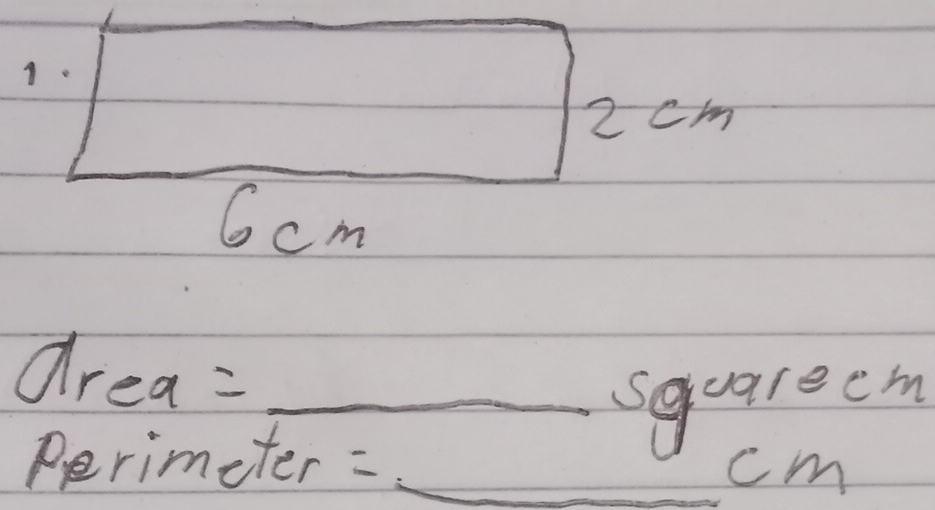 1.
2 cm
6 cm
Area = ________ square cm
Perimeter = ________ cm